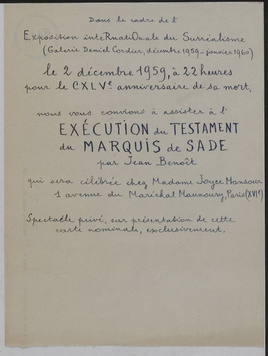 Dans le cadre de l'
Exposition inteRnatiOnale du Surréalisme
(Galerie Daniel Cordier, décembre 1959 - janvier 1960)
le 2 décembre 1959, à 22 heures
pour le CXLVe anniversaire de sa mort,
nous vous convions à assister à l'
EXÉCUTION du TESTAMENT
du MARQUIS de SADE
par Jean Benoît
qui sera célébrée chez Madame Joyce Mansour
1 avenue du Maréchal Maunoury, Paris (XVIe)
Spectacle privé, sur présentation de cette
carte nominale, exclusivement.